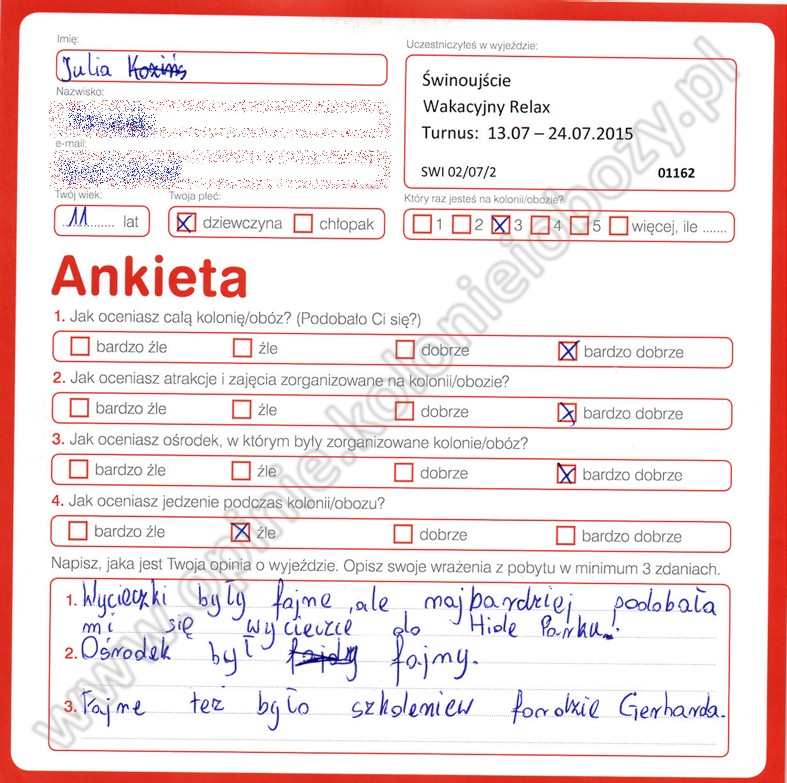 Imię:
Uczestniczyłeś w wyjeździe:
Julia
Świnoujście
Wakacyjny Relax
Turnus: 13.07 – 24.07.2015
SWI 02/07/2 01162
Nazwisko:
e-mail:
Twój wiek:
Twoja płeć:
Który raz jesteś na kolonii/obozie?
11 lat
dziewczyna chłopak
1 2 3 4 5 więcej, ile .......
Ankieta
1. Jak oceniasz całą kolonię/obóz? (Podobało Ci się?)
bardzo źle źle dobrze bardzo dobrze
2. Jak oceniasz atrakcje i zajęcia zorganizowane na kolonii/obozie?
bardzo źle źle dobrze bardzo dobrze
3. Jak oceniasz ośrodek, w którym były zorganizowane kolonie/obóz?
bardzo źle źle dobrze bardzo dobrze
4. Jak oceniasz jedzenie podczas kolonii/obozu?
bardzo źle źle dobrze bardzo dobrze
Napisz, jaka jest Twoja opinia o wyjeździe. Opisz swoje wrażenia z pobytu w minimum 3 zdaniach.
1. Wycieczki były fajne, ale najbardziej podobała
mi się wycieczie do Hide Parku.
2. Ośrodek był fajny.
3. Fajne też było szkoleniew forcie Gerharda.
www.opinie.kolonieiobozy.pl